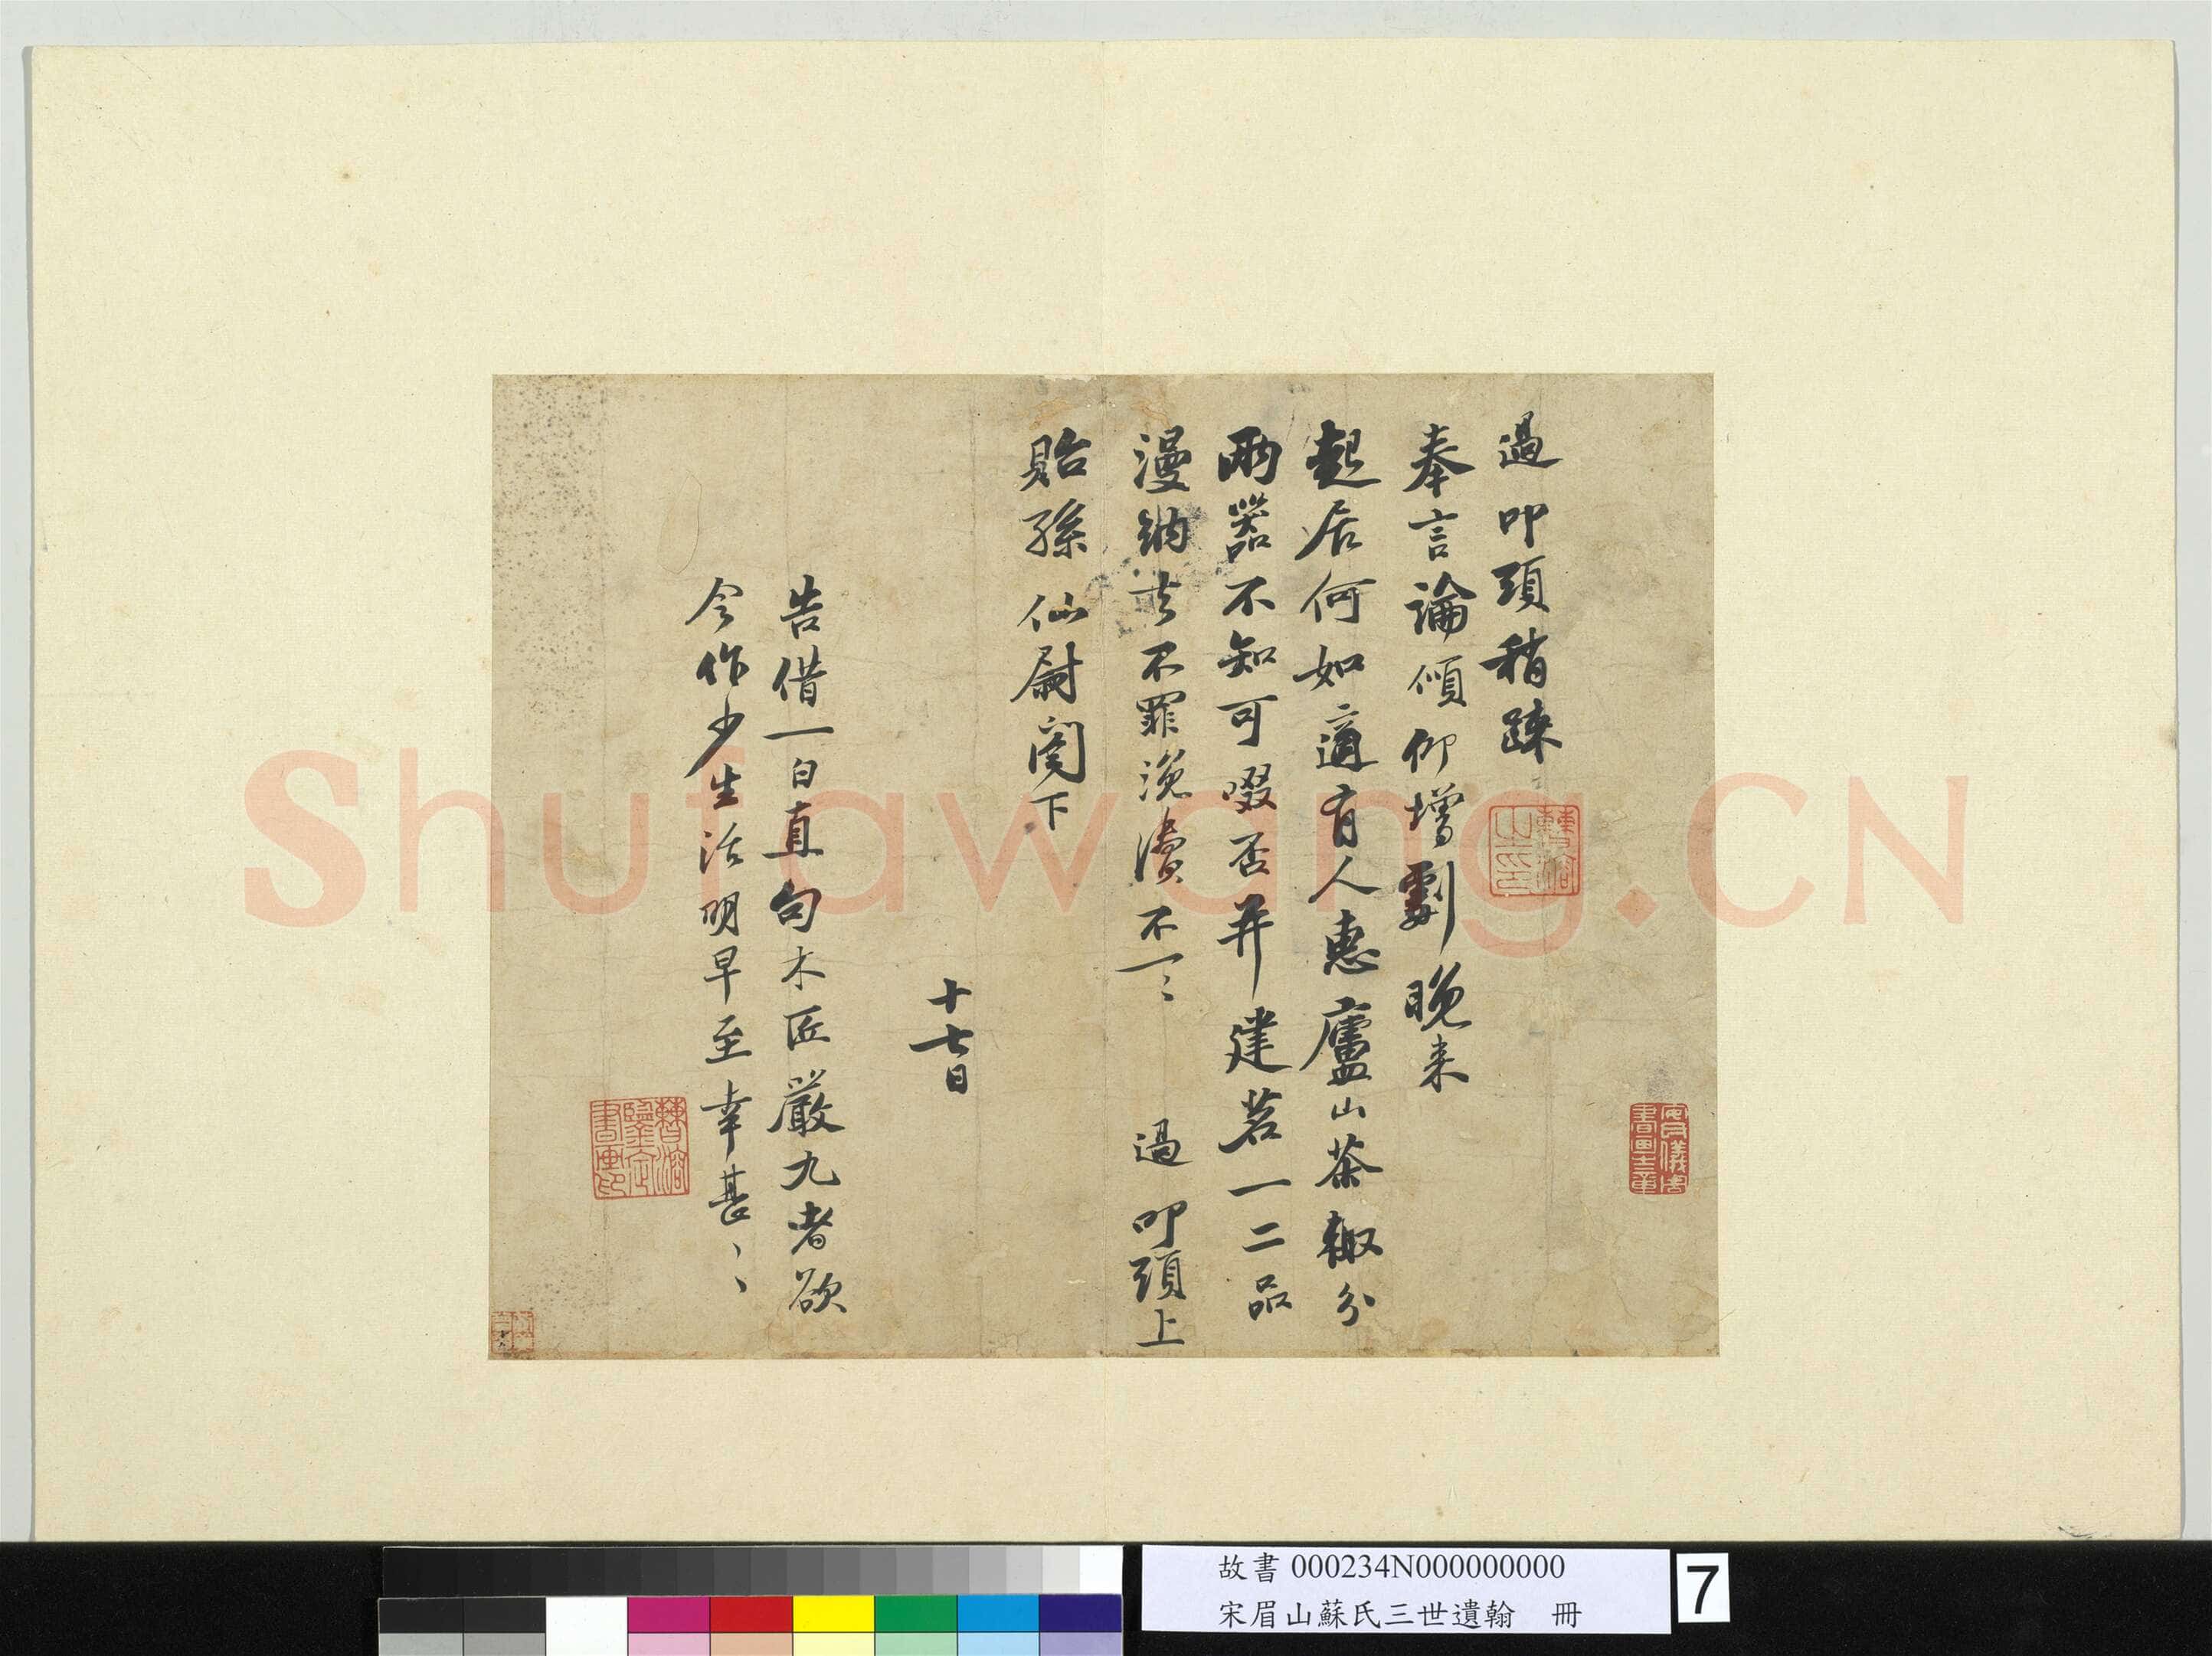 過叩頭稍疎
奉言論傾仰增劇晚来
起居何如適有人惠廬山茶輙分
兩器不知可啜否并建茗一二品
漫納去不罪浼瀆不一〻　過叩頭上
貽孫仙尉閣下
十七日
告借一白直句木匠嚴九者欲
令作少生活明早至幸甚〻〻
安儀周書畫之章
曹溶之印
曹溶鑒定書畫印
Shufawang.CN
故書 000234N000000000
宋眉山蘇氏三世遺翰　冊
7